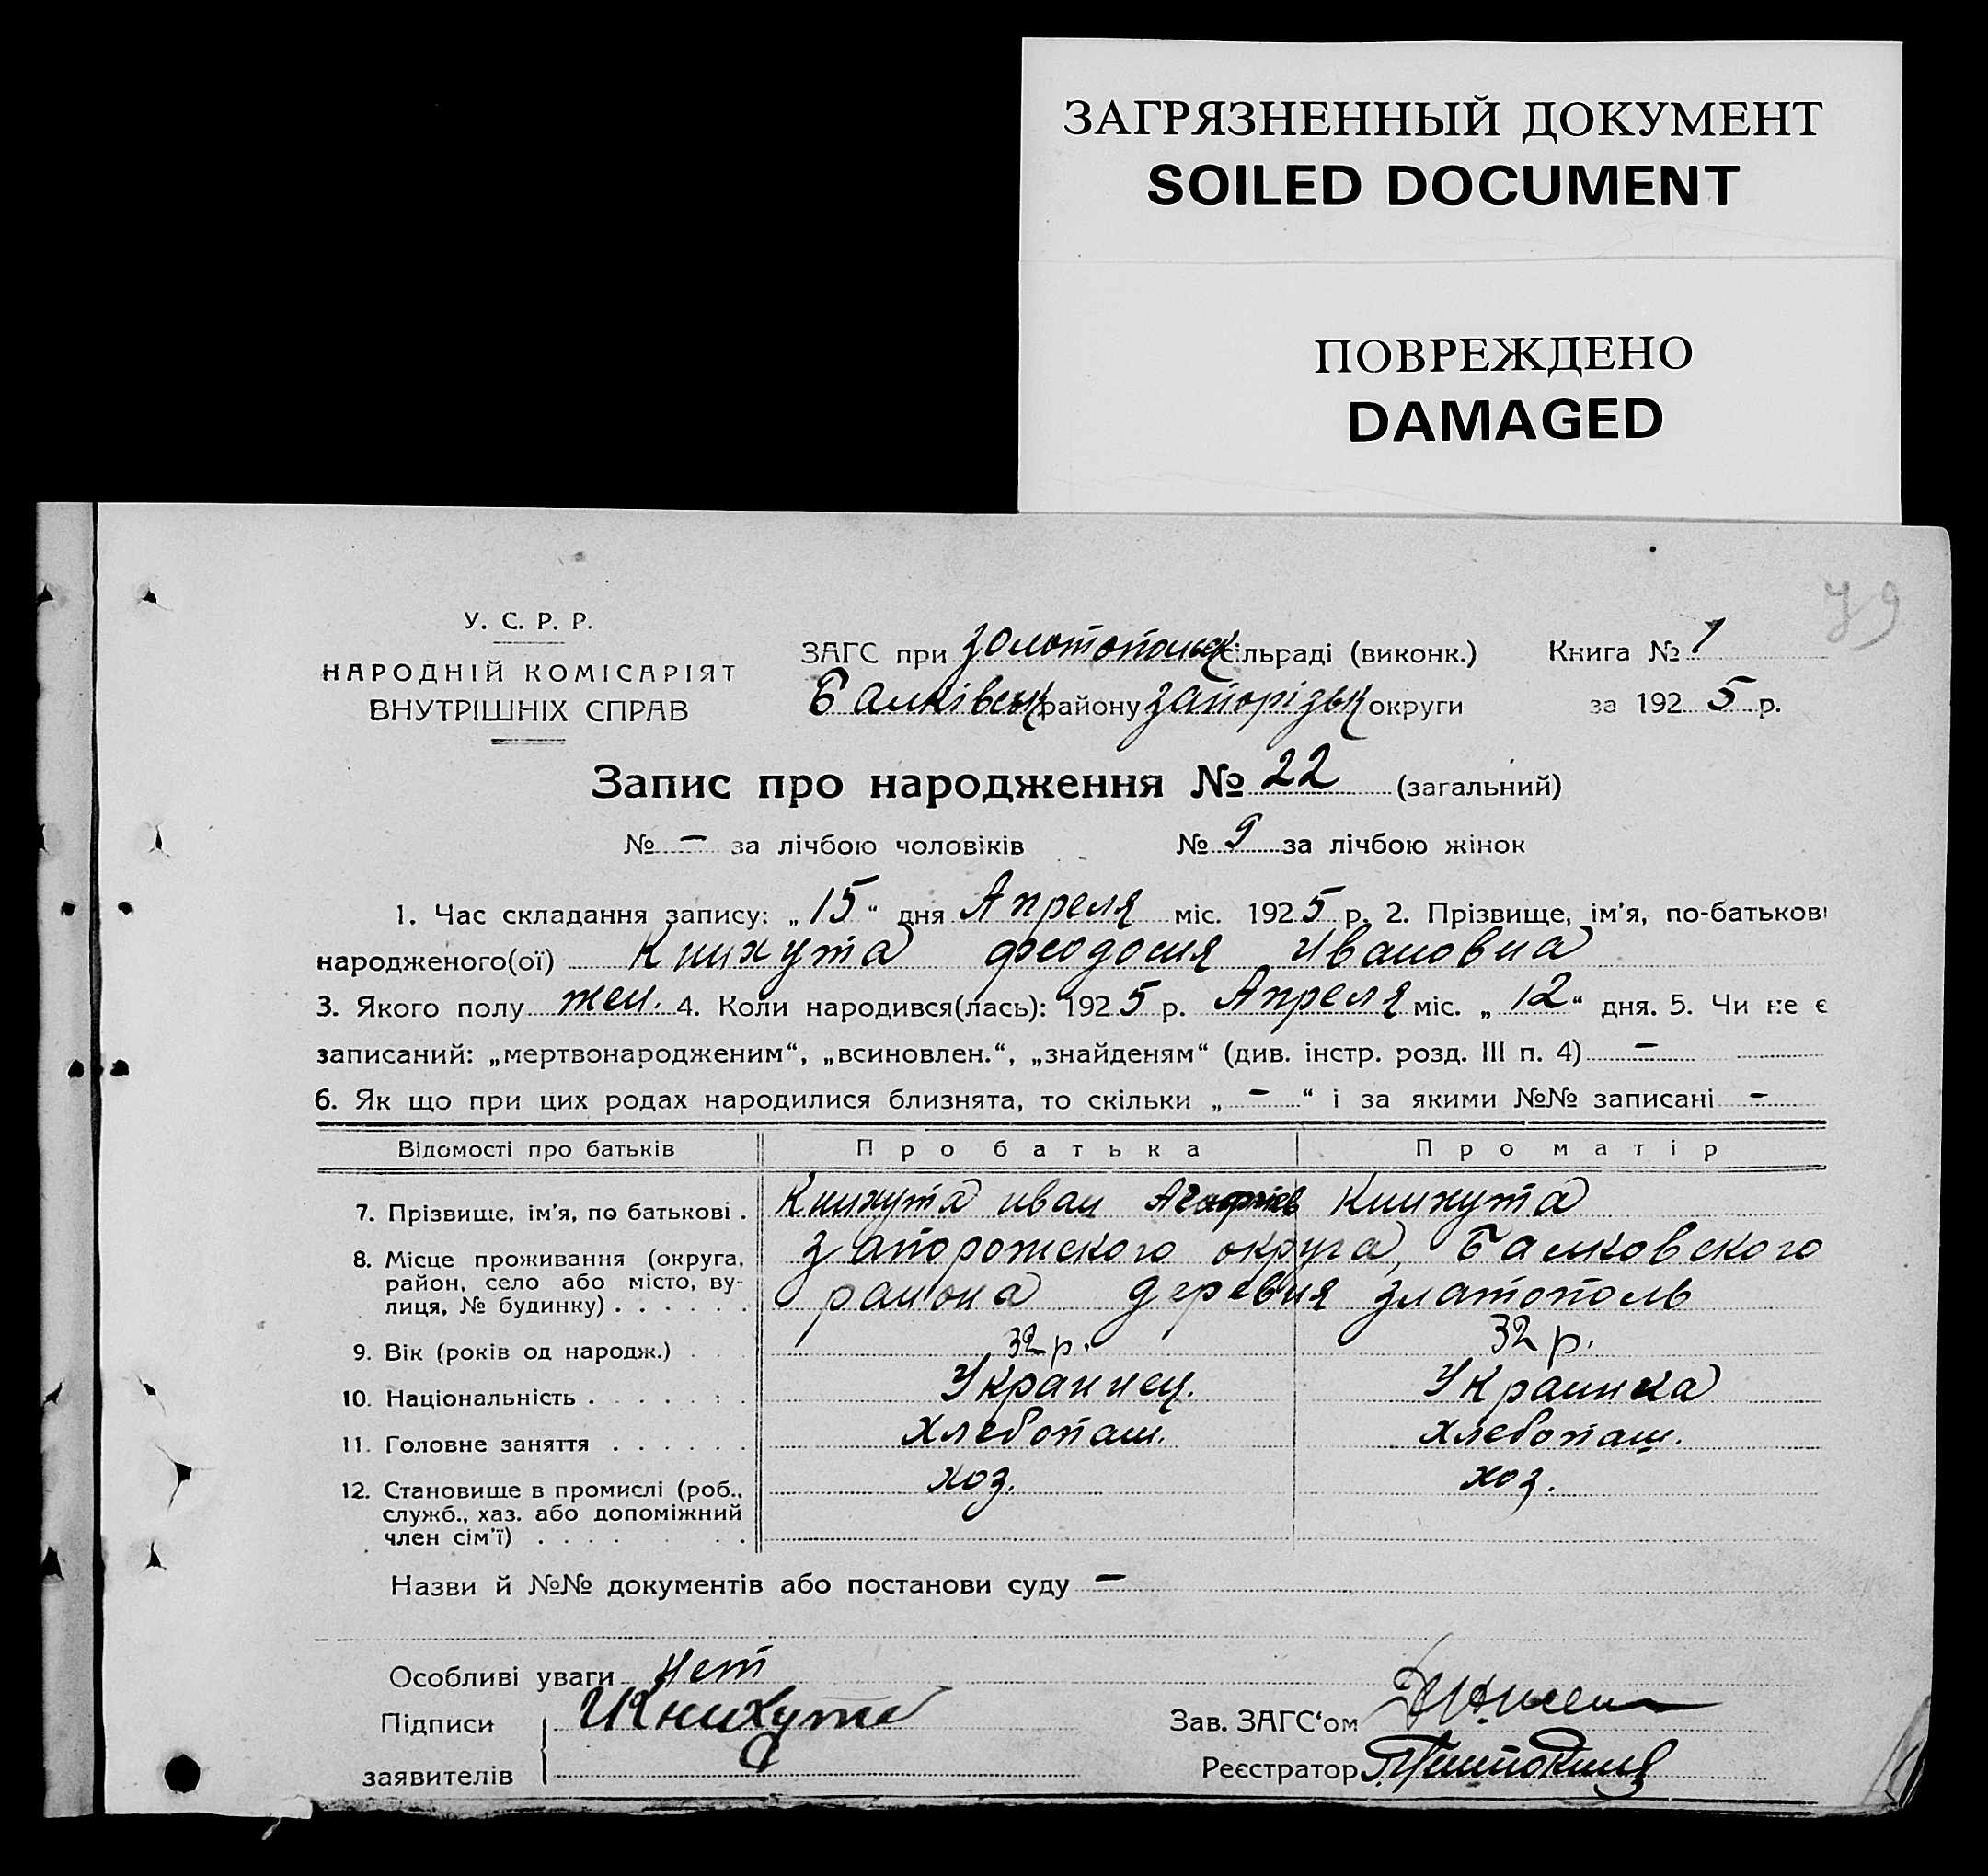 ЗАГРЯЗНЕННЫЙ ДОКУМЕНТ
SOILED DOCUMENT
ПОВРЕЖДЕНО
DAMAGED
79
У. С. Р. Р.
НАРОДНІЙ КОМІСАРІЯТ
ВНУТРІШНІХ СПРАВ
ЗАГС при Золотопольск сільраді (виконк.) Книга № 1
Балківськ району Запорізьк округи за 1925 р.
Запис про народження № 22 (загальний)
№ – за лічбою чоловіків № 9 за лічбою жінок
1. Час складання запису: „15“ дня Апреля міс. 1925 р. 2. Прізвище, ім'я, по-батькові
народженого(ої) Книхута Феодосия Ивановна
3. Якого полу жен. 4. Коли народився(лась): 1925 р. Апреля міс. „12“ дня. 5. Чи не є
записаний: „мертвонародженим“, „всиновлен.“, „знайденям“ (див. інстр. розд. III п. 4) –
6. Як що при цих родах народилися близнята, то скільки „ – “ і за якими №№ записані –
Відомості про батьків Про батька Про матір
7. Прізвище, ім'я, по батькові . Книхута Иван Книхута
8. Місце проживання (округа, район, село або місто, вулиця, № будинку) . . . . . . Запорожского округа, Балковского
района деревня Златополь
9. Вік (років од народж.) . . 32 р. 32 р.
10. Національність . . . . . . . Украинец. Украинка
11. Головне заняття . . . . . . Хлебопаш. Хлебопаш.
12. Становище в промислі (роб., служб., хаз. або допоміжний член сім'ї) . . . . . . . хоз. хоз.
Назви й №№ документів або постанови суду –
Особливі уваги нет
Підписи заявителів И Книхута
Зав. ЗАГС'ом
Реєстратор